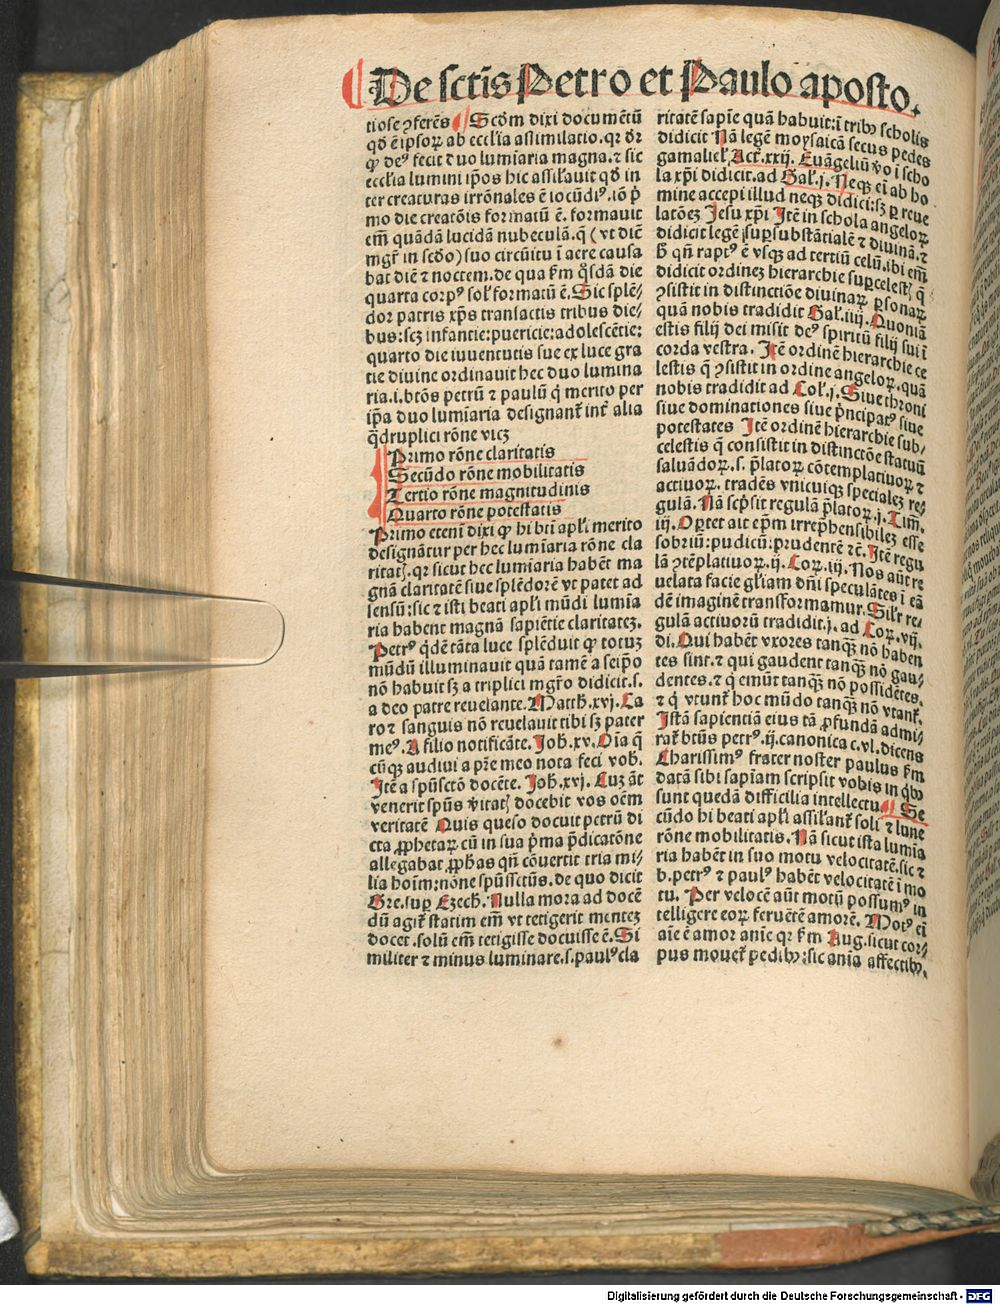 De sctīs Petro et Paulo aposto.
tiose ꝯferēs ¶ Scdm dixi documētū
qd ē ipsoꝝ ab ecclīa assimilatio. qꝛ dr
ꝙ deꝰ fecit duo lumīaria magna. ⁊ sic
ecclīa lumini ip̄os hic assilauit qd in
ter creaturas irrōnales ē iocūdiꝰ. iō p̄
mo die creatōis formatū ē. formauit
em̄ quādā lucidā nubeculā. q̄ (vt diē
mgr̄ in scdo) suo circūitu ī aere causa
bat diē ⁊ noctem. de qua fm qͦsdā die
quarta corpꝰ sol formatū ē. Sic splē⸗
dor patris xp̄s transactis tribus die⸗
bus: scꝫ infantie: puericie: adolescētie:
quarto die iuuentutis sue ex luce gra
tie diuine ordinauit hec duo lumina
ria. i. btōs petrū ⁊ paulū q̄ merito per
ip̄a duo lumīaria designanť inť alia
q̄druplici rōne vicꝫ
Primo rōne claritatis
Secūdo rōne mobilitatis
Tertio rōne magnitudinis
Quarto rōne potestatis
Primo etenī dixi ꝙ hi btī apli merito
designātur per hec lumīaria rōne cla
ritatꝭ. qꝛ sicut hec lumīaria habēt ma
gnā claritatē siue splēdorē vt patet ad
sensū: sic ⁊ isti beati apli mūdi lumīa
ria habent magnā sapiētie claritateꝫ.
Petrꝰ qͥdē tāta luce splēduit ꝙ totuꝫ
mūdū illuminauit quā tamē a seip̄o
nō habuit sꝫ a triplici mgr̄o didicit. s.
a deo patre reuelante. Matth. xvj. Ca
ro ⁊ sanguis nō reuelauit tibi sꝫ pater
meꝰ. A filio notificāte. Joh. xv. Oīa q̄
cūqꝫ audiui a pr̄e meo nota feci vob.
Itē a spūsctō docēte. Joh. xvj. Cuꝫ āt
venerit spūs v̄itatꝭ docebit vos oēm
veritatē Quis queso docuit petrū di
cta ꝓphetaꝝ cū in sua p̄ma p̄dicatōne
allegabat ꝓphas qn̄ cōuertit tria mi⸗
lia hoīm: nōne spūssctūs. de quo dicit
Gre. suꝑ Ezech. Nulla mora ad docē
dū agiť statim em̄ vt tetigerit menteꝫ
docet. solū em̄ tetigisse docuisse ē. Si
militer ⁊ minus luminare. s. paulꝰ cla
ritatē sapīe quā habuit: ī tribꝰ scholis
didicit Nā legē moysaicā secus pedes
gamaliel. Act. xxij. Euāgeliū v̄o ī scho
la xp̄i didicit. ad Gal. j. Neqꝫ ei ab ho
mine accepi illud neqꝫ didici: sꝫ ꝑ reue
latōeꝫ Jesu xp̄i Itē in schola angeloꝝ
didicit legē supsubstātialē ⁊ diuinā. ⁊
h qn̄ raptꝰ ē vsqꝫ ad tertiū celū. ibi em̄
didicit ordineꝫ hierarchie supcelestꝭ q̄
ꝯsistit in distinctiōe diuinaꝝ ꝑsonaꝝ
quā nobis tradidit Gal. iiij. Quoniā
estis filij dei misit deꝰ spiritū filij sui ī
corda vestra. Itē ordinē hierarchie ce
lestis q̄ ꝯsistit in ordine angeloꝝ. quā
nobis tradidit ad Col. j. Siue throni
siue dominationes siue p̄ncipatꝰ siue
potestates Itē ordinē hierarchie sub⸗
celestis q̄ consistit in distinctōe statuū
saluādoꝝ. s. p̄latoꝝ cōtemplatiuoꝝ ⁊
actiuoꝝ. tradēs vnicuiqꝫ specialeꝫ re⸗
gulā. Nā scp̄sit regulā p̄latoꝝ. j. Tim.
iij. Oꝑtet ait ep̄m irrep̄hensibileꝫ esse
sobriū: pudicū: prudentē ⁊c̄. Itē regu
lā ꝯtēplatiuoꝝ. ij. Coꝝ. iij. Nos aūt re
uelata facie gl̄iam dn̄i speculātes ī eā
dē imaginē transformamur. Silr re⸗
gulā actiuorū tradidit. j. ad Coꝝ. vij.
di. Qui habēt vxores tanqꝫ nō haben
tes sint. ⁊ qui gaudent tanqꝫ nō gau⸗
dentes. ⁊ q̄ emūt tanqꝫ nō possidētes.
⁊ q̄ vtunť hoc mūdo tanqꝫ nō vtanť.
Istā sapientiā eius tā ꝓfundā admi⸗
rať btūs petrꝰ. ij. canonica c. vl. dicens
Charissimꝰ frater noster paulus fm
datā sibi sapīam scripsit vobis in qͥbꝰ
sunt quedā difficilia intellectu ¶ Se
cūdo hi beati apli assilanť soli ⁊ lune
rōne mobilitatis. Nā sicut ista lumīa
ria habēt in suo motu velocitatē. sic ⁊
b. petrꝰ ⁊ paulꝰ habēt velocitatē ī mo
tu. Per velocē aūt motū possumꝰ in
telligere eoꝝ feruētē amorē. Motꝰ ei
aīe ē amor anīe qꝛ fm Aug. sicut cor⸗
pus mouet pedibꝰ: sic anīa affectibꝰ.
Digitalisierung gefördert durch die Deutsche Forschungsgemeinschaft - DFG